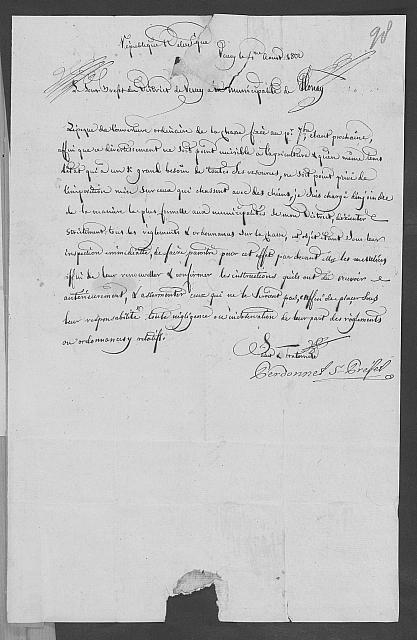 98
République Helvétique
Vevey le 1er Aoust 1800
Le Sous Prefet du District de Vevey à la municipalité de Blonay
L'epoque de l'ouverture ordinaire de la chasse fixée au 1er 7bre etant prochaine,
affin que ce divertissement ne soit point nuisible à l'agriculture & qu'en même tems
l'état qui a un si grand besoin de toutes ses ressources, ne soit point privé de
l'imposition mise sur ceux qui chassent avec des chiens, je suis chargé d'enjoindre
de la manière la plus formelle aux municipalités de mon District, d'executer
strictement tous les reglements & ordonnances sur la chasse, et objet étant sous leur
inspection immédiate, de faire paroitre pour cet effet par devant elles les messeliers
affin de leur renouveller & confirmer les instructions qu'ils ont du recevoir
antérieurement, & assermenter ceux qui ne le seroient pas, affin de placer sous
leur responsabilité toute négligence ou inobservation de leur part des règlements
ou ordonnances y relatifs.
Salut & fraternité
Perdonnet Ss Préfet